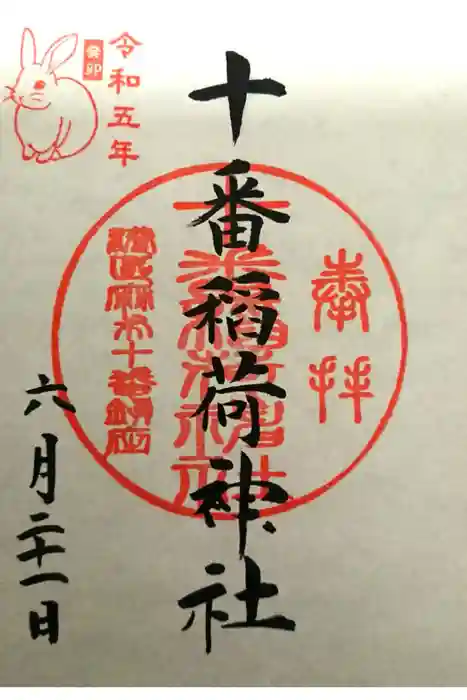 奉拝
十番稲荷神社
港区麻布十番鎮座
令和五年
癸卯
六月二十一日